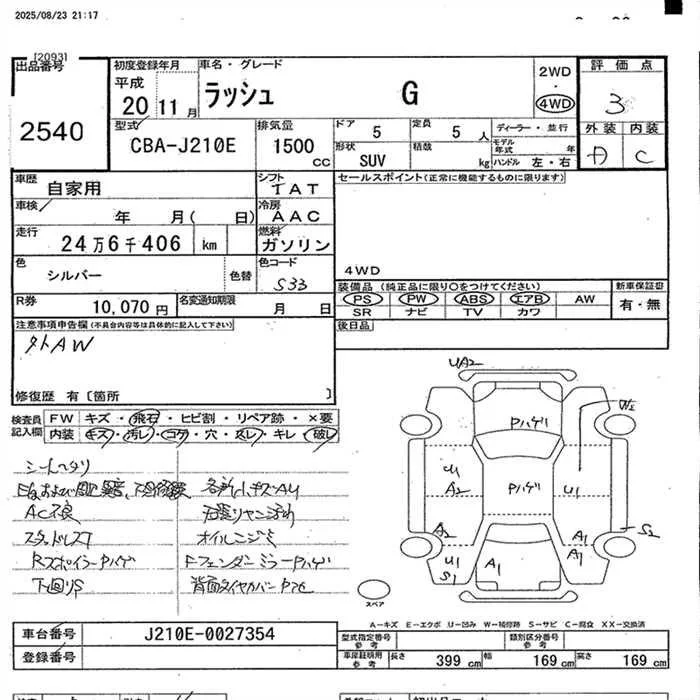 2025/08/23 21:17
[2093]
出品番号
2540
初度登録年月
平成
20 11月
車名・グレード
ラッシュ G
2WD
・
4WD
評価点
3
型式
CBA-J210E
排気量
1500 cc
ドア
5
定員
5 人
ディーラー・並行
モデル年式 年
外装 内装
C
形状
SUV
積載
kg
ハンドル 左・右
車歴
自家用
シフト
I A T
セールスポイント(正常に機能するものに限ります)
4WD
車検
年 月( 日)
冷房
A A C
走行
24万6千406 km
燃料
ガソリン
色
シルバー
色替
色コード
S33
装備品 (純正品に限り○をつけてください)
新車保証書
PS PW ABS エアB AW
有・無
SR ナビ TV カワ
R券
10,070円
名変通知期限
月 日
後日品
注意事項申告欄(不具合内容等は具体的に記入して下さい)
外AW
修復歴 有 〔箇所 〕
検査員
記入欄
FW キズ・飛石・ヒビ割・リペア跡・×要
内装 キズ・汚レ・コゲ・穴・スレ・キレ・破レ
シートヘタリ
各所小キズAU
AC不良
スタッドレスT
オイルニジミ
RスポイラーPハゲ
FフェンダーミラーPハゲ
下回りS
UA2
Pハゲ
W2
U1
A2
Pハゲ
U1
A2
S2
U1
S1
A1
A1
A1
スペア
A－キズ E－エクボ U－凹み W－補修跡 S－サビ C－腐食 XX－交換済
車台番号
J210E-0027354
登録番号
型式指定番号
参考
類別区分番号
参考
車庫証明用
参考
長さ 399 cm
幅 169 cm
高さ 169 cm